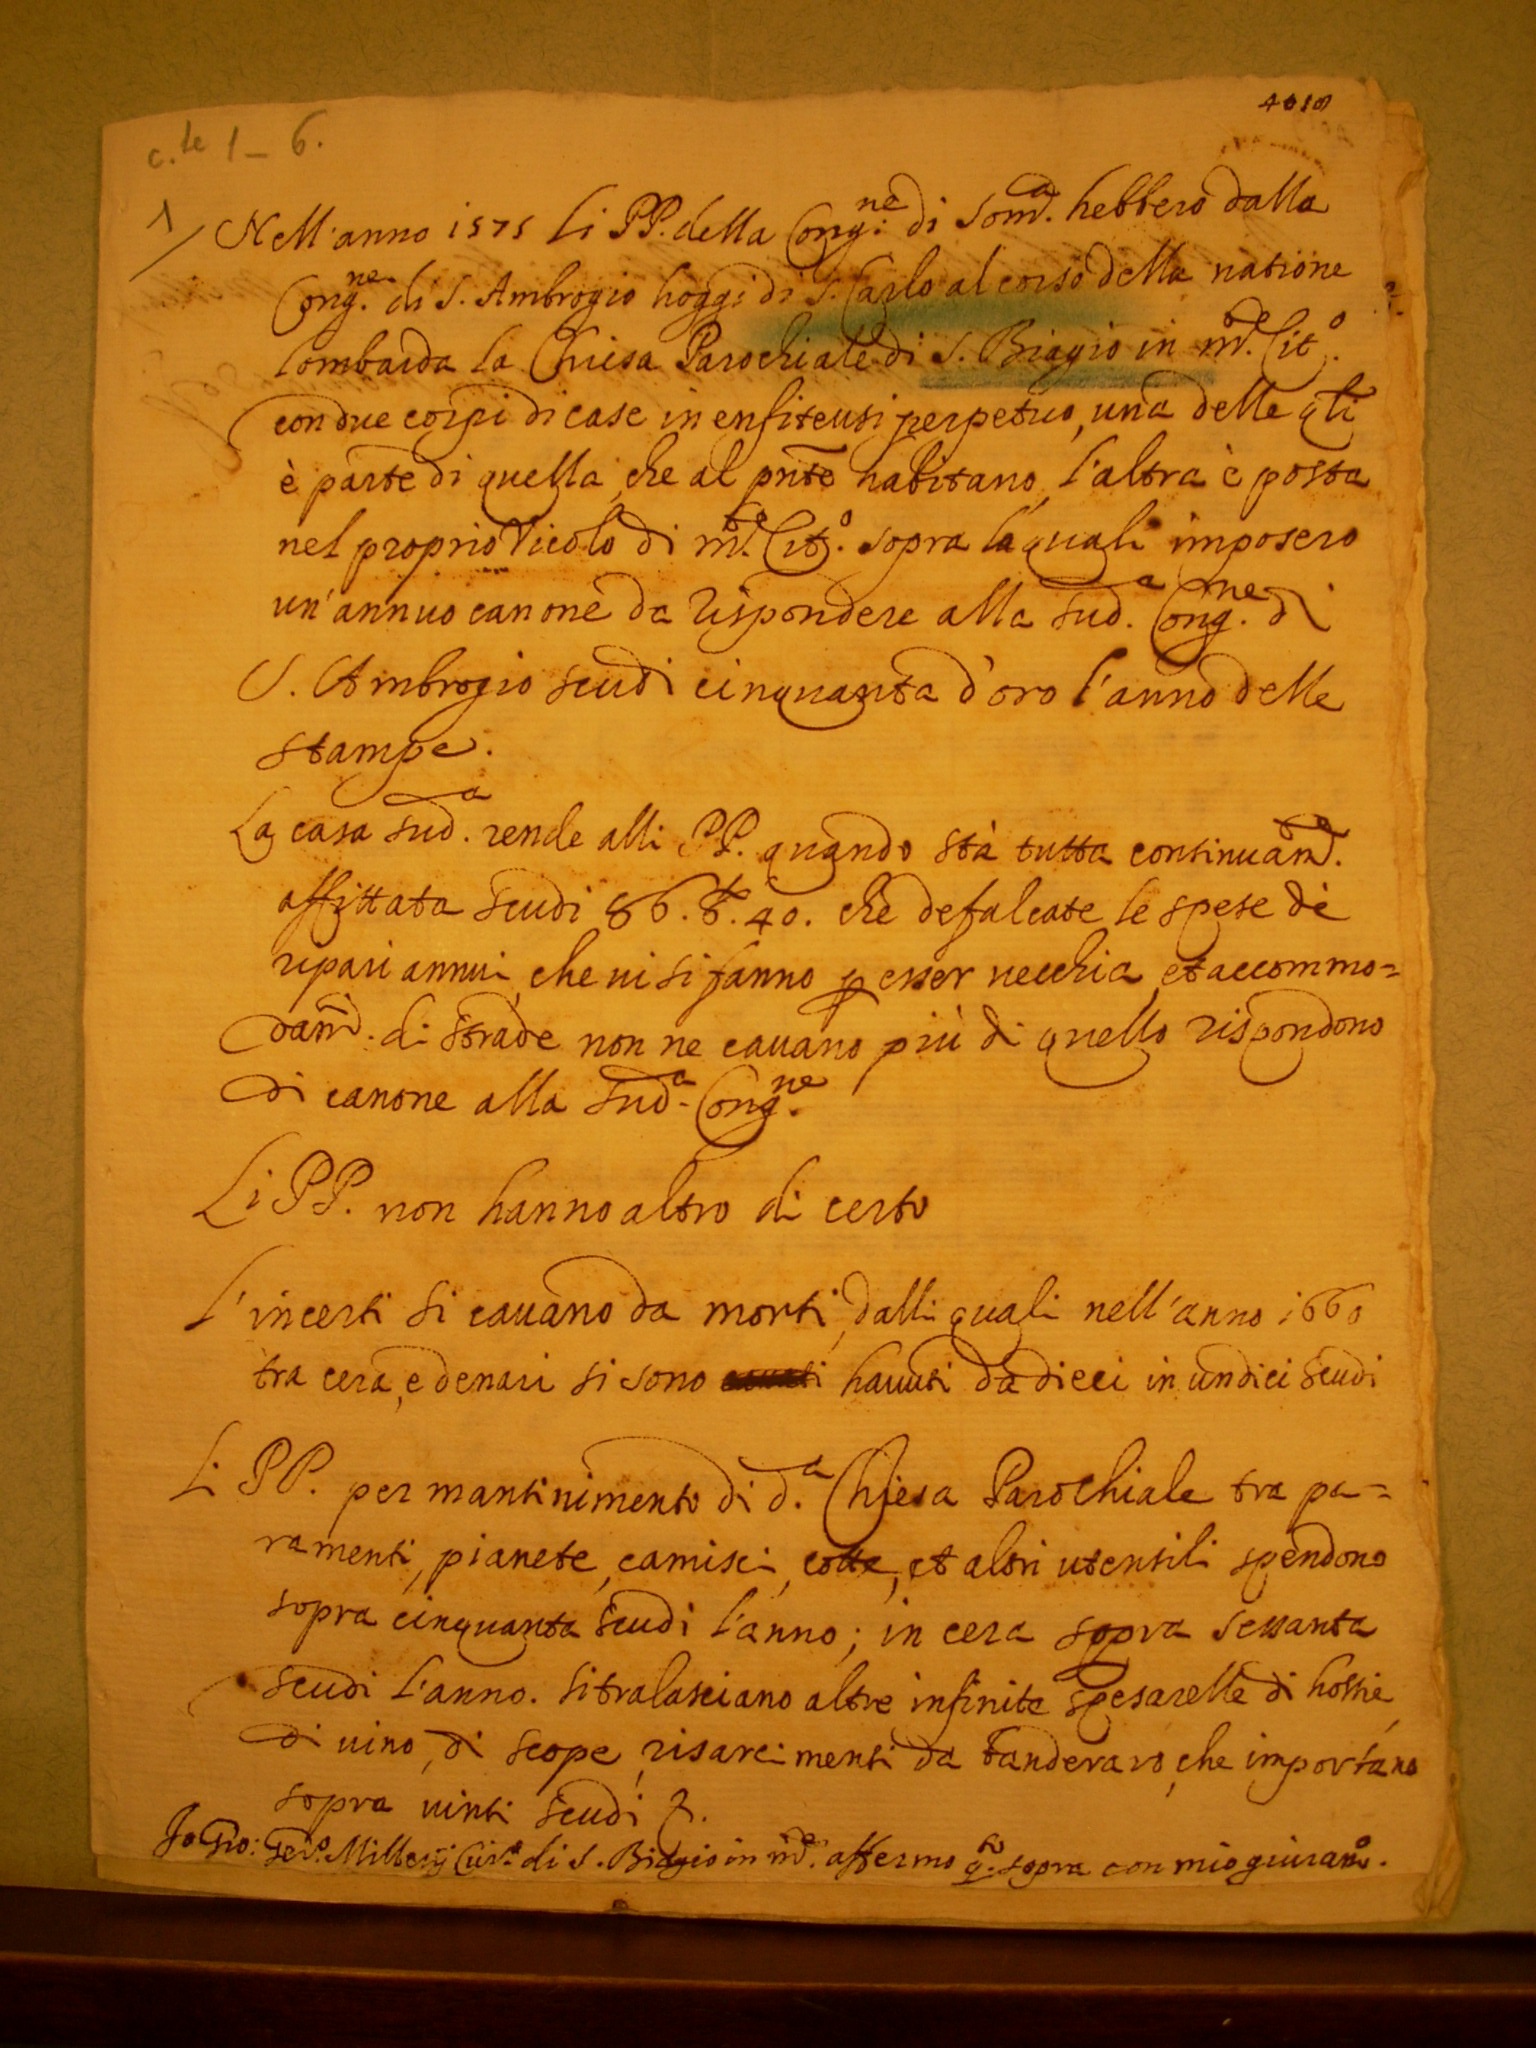 c.te 1_6.
1/
Nell'anno 1575 li PP. della Cong.ne di Som.a hebbero dalla
Cong.ne di S. Ambrogio hoggi di S. Carlo al corso della natione
lombarda la Chiesa Parochiale di S. Biagio in m.te Cit.o
con due corpi di case in enfiteusi perpetuo, una delle qli
è parte di quella, che al pnte habitano, l'altra è posta
nel proprio Vicolo di m.te Cit.o sopra la quali imposero
un'annuo canone da rispondere alla sud.a Cong.ne di
S. Ambrogio scudi cinquanta d'oro l'anno delle
stampe.
La casa sud.a rende alli PP. quando stà tutta continuam.te
affittata scudi 86. 40. che defalcate le spese dè
ripari annui, che vi si fanno p esser vecchia, et accommo=
dam.ti di strade non ne cavano più di quello rispondono
di canone alla sud.a Cong.ne
Li PP. non hanno altro di certo
L'incerti si cavano da morti, dalli quali nell'anno 1660
tra cera, e denari si sono havuti da dieci in undici scudi
Li PP. per mantinimento di d.a Chiesa Parochiale tra pa=
ramenti, pianete, camisci, cotte, et altri utensili spendono
sopra cinquanta scudi l'anno; in cera sopra sessanta
scudi l'anno. Si tralasciano altre infinite spesarelle di hostie,
di vino, di scope, risarcimenti da banderaro, che importano
sopra vinti scudi
Io Gio: Ger.o Curto di S. Biagio in m.te affermo q.to sopra con mio giuram.o.